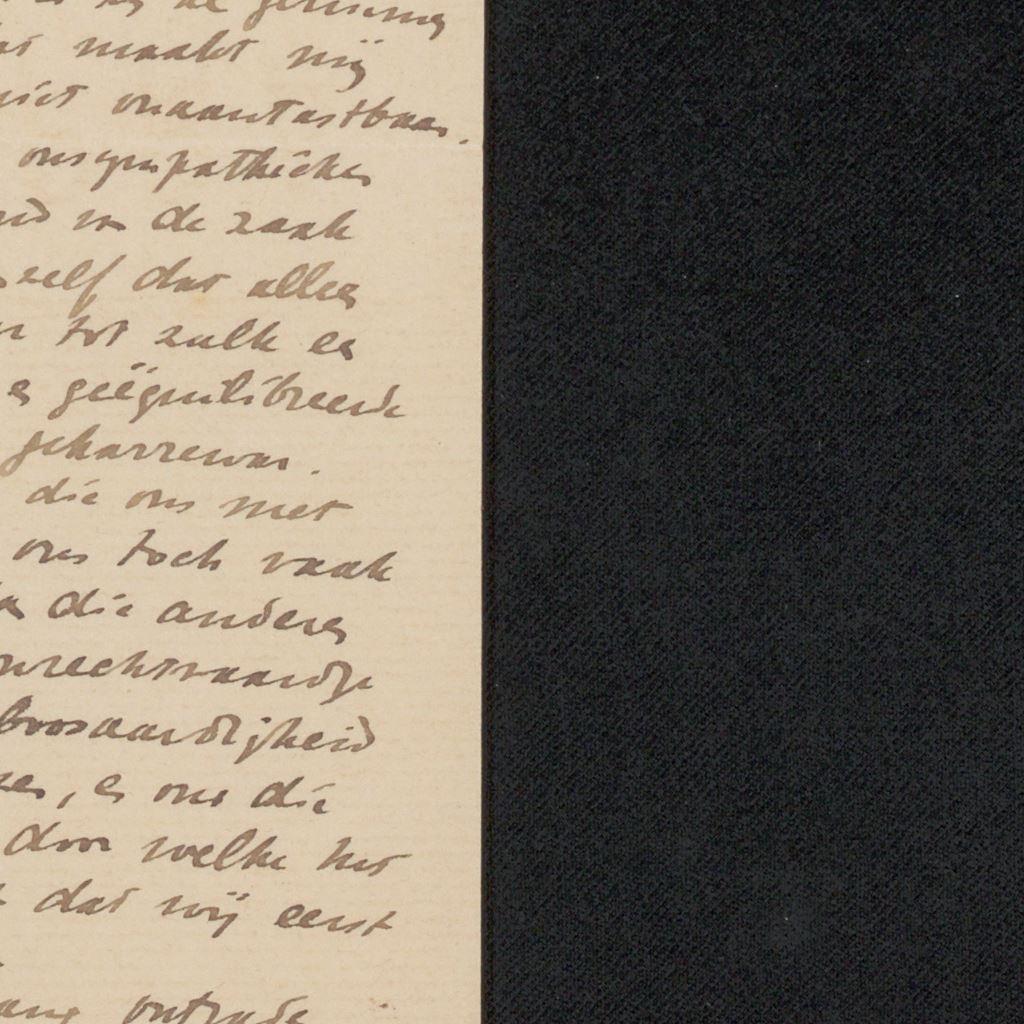 de
maakt mij
niet onaantastbaar.
onsympathieke
in de zaak
zelf dat alles
tot zulk en
en geëquilibreerde
geharrewar.
die ons niet
ons toch vaak
die anderen
onrechtvaardige
boosaardigheid
, en ons die
door welke het
dat wij eerst